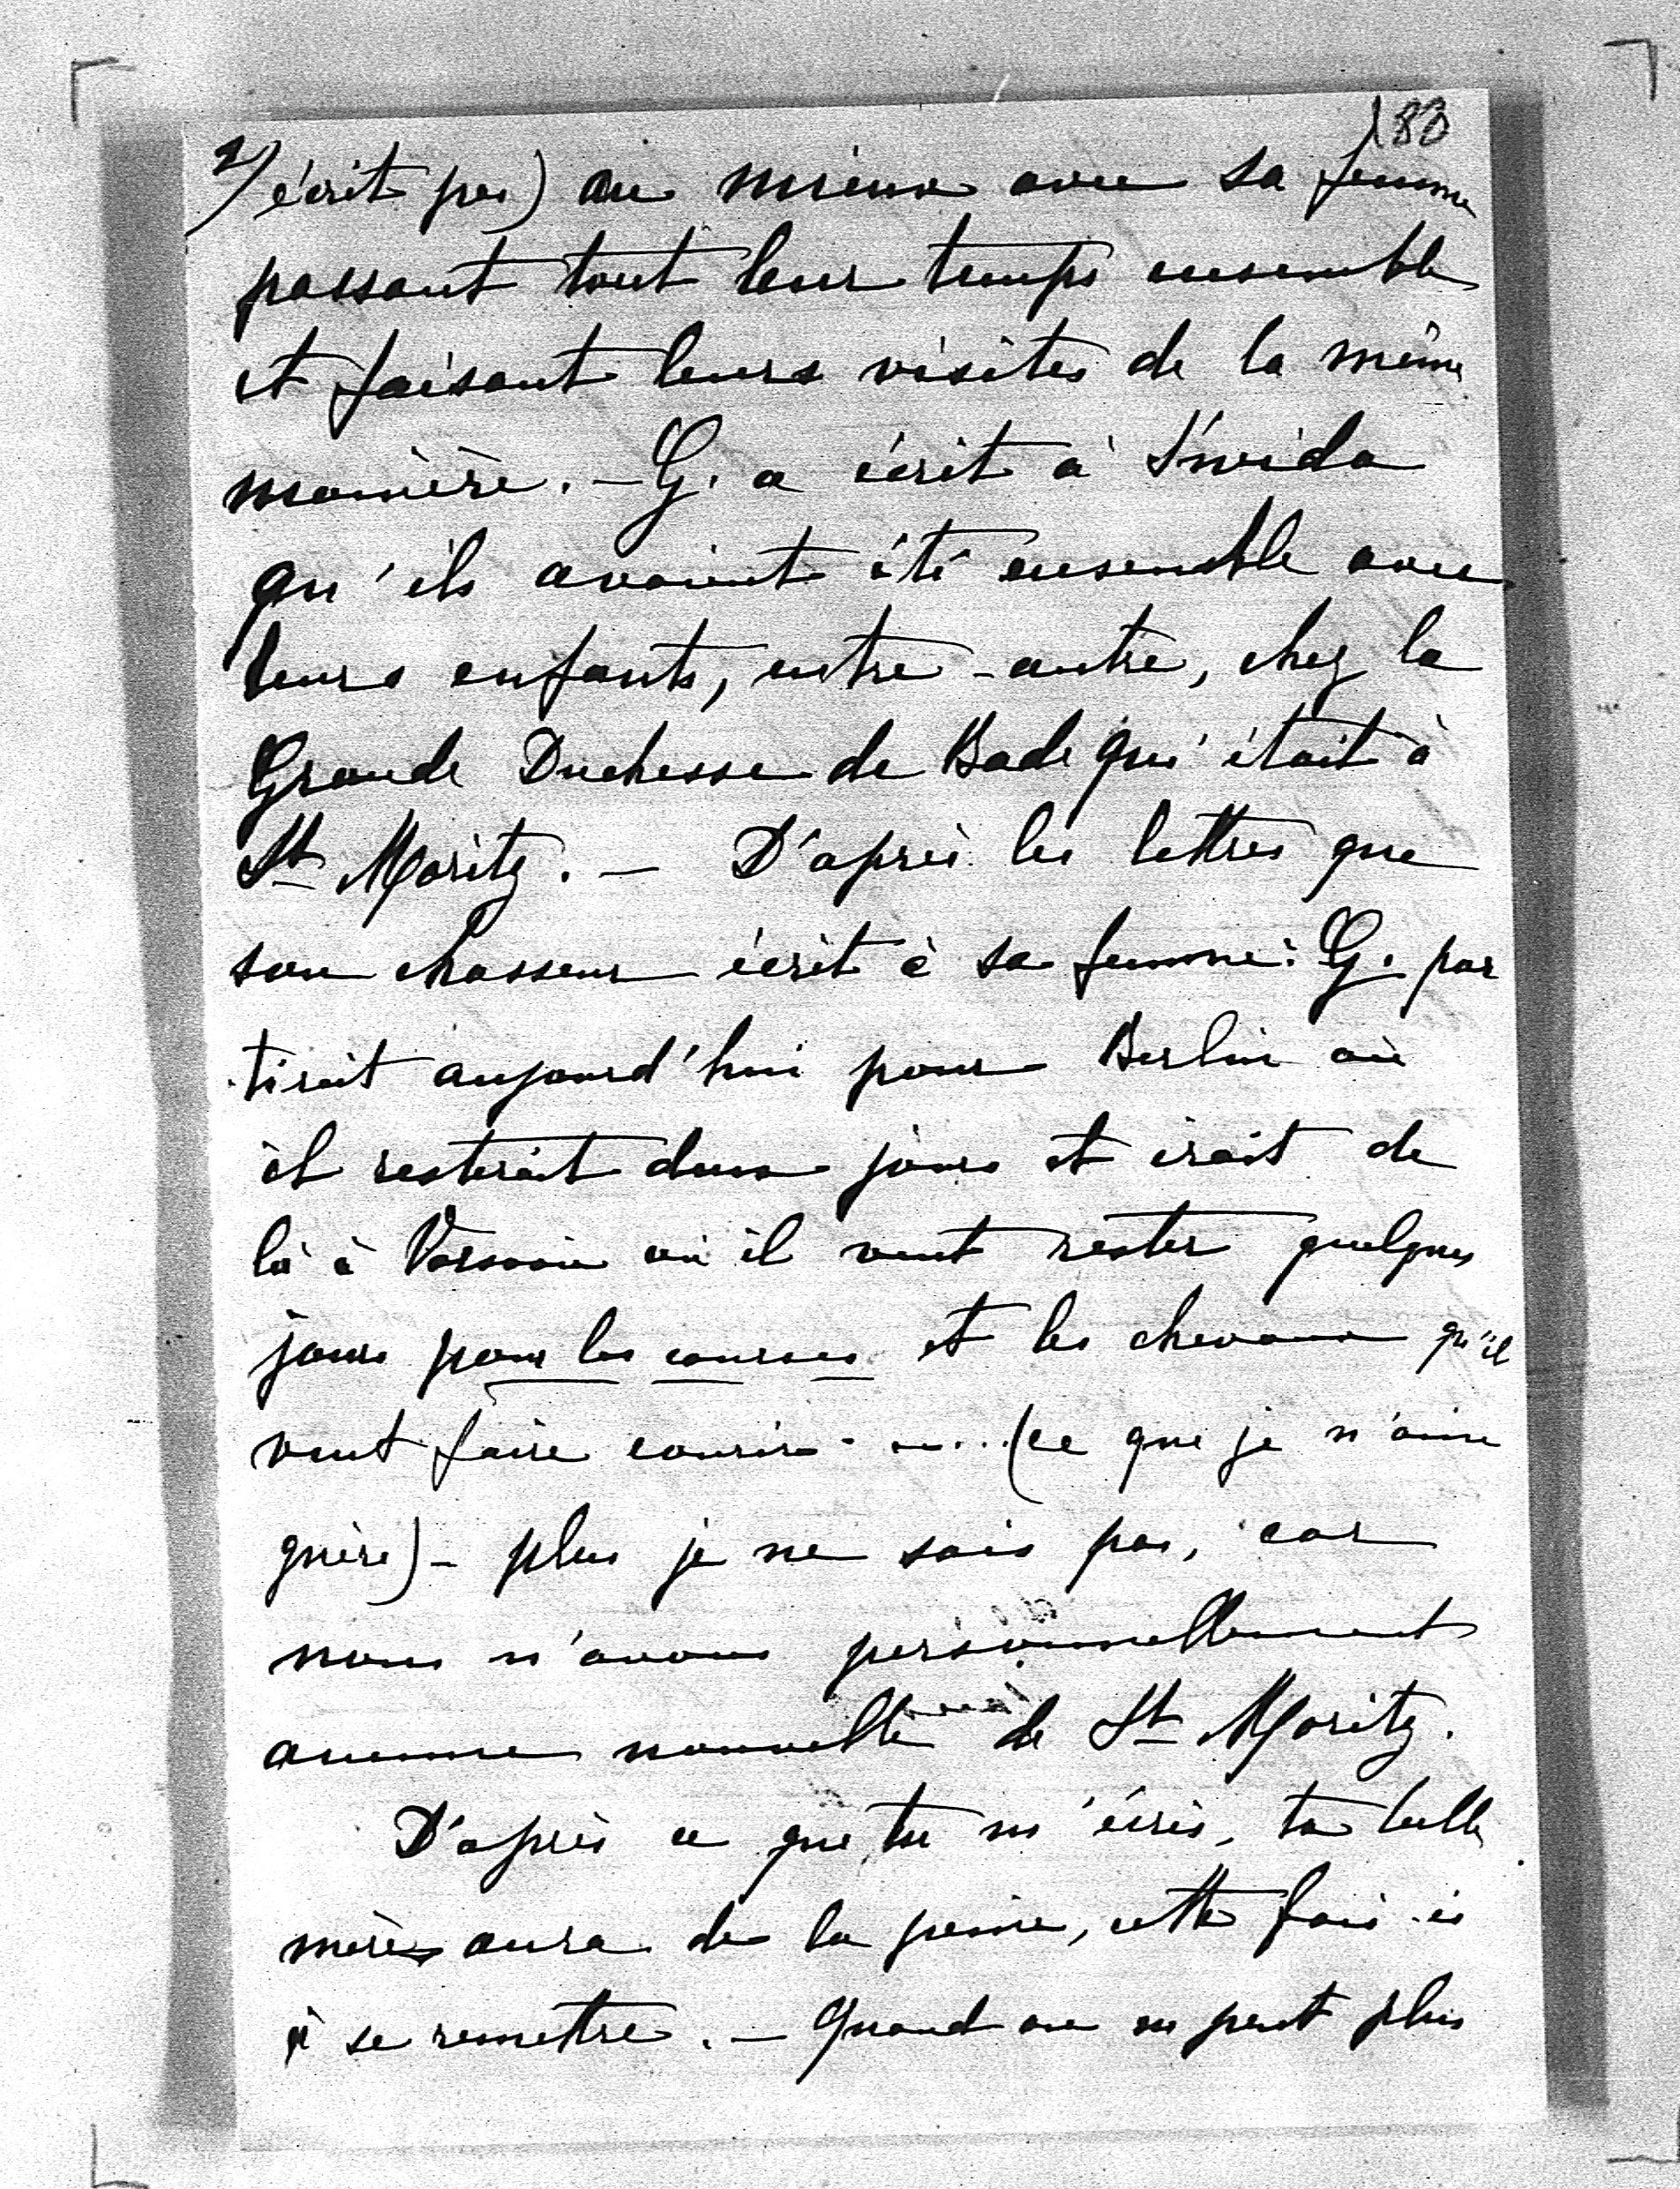 183
2/ écrit pas) au mieux avec sa femme
passant tout leur temps ensemble
et faisant leurs visites de la même
manière. – G. a écrit à
qu'ils avaient été ensemble avec
leurs enfants, entre-autre, chez la
Grande Duchesse de Bade qui était à
St Moritz. – D'après les lettres que
son chasseur écrit à sa femme: G. par
tirait aujourd'hui pour Berlin où
il resterait deux jours et irait de
là à Varsovie où il veut rester quelques
jours pour les courses et les chevaux qu'il
veut faire courir .... (ce que je n'aime
guère) – plus je ne sais pas, car
nous n'avons personnellement
aucune nouvelle de St Moritz.
D'après ce que tu m'écris, ta belle
mère aura de la peine, cette fois-ci
à se remettre. – Quand on en peut plus